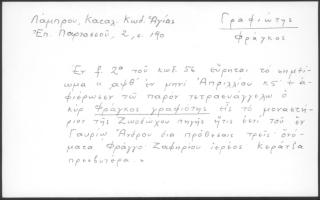 Λάμπρου, Καταλ. Κωδ. Ἁγίας
Ἐπ. Παρνασσοῦ, 2, σ. 190
Γραφιώτης
Φράγκος
Ἐν f. 2α τοῦ κωδ. 56 εὕρηται τὸ σημείωμα
« αφθ' ἐν μηνὶ Ἀπριλλίου κς' + ἀ-
φιέρωσεν τῶ παρὸν τετραευάγγελω ὁ
κὺρ Φράγκος γραφιότης εἰς τὸ μοναστή-
ριον τῆς Ζωοδώχου πηγῆς ἥτις ἐστὶ τοῦ ἐν
Γαυρίω Ἄνδρου δια πρόθεσαις τρεῖς· ὀνό-
ματα Φράγγο· Ζαφηρίου ἱερέος Κεράτζα
πρεσβυτέρα. »